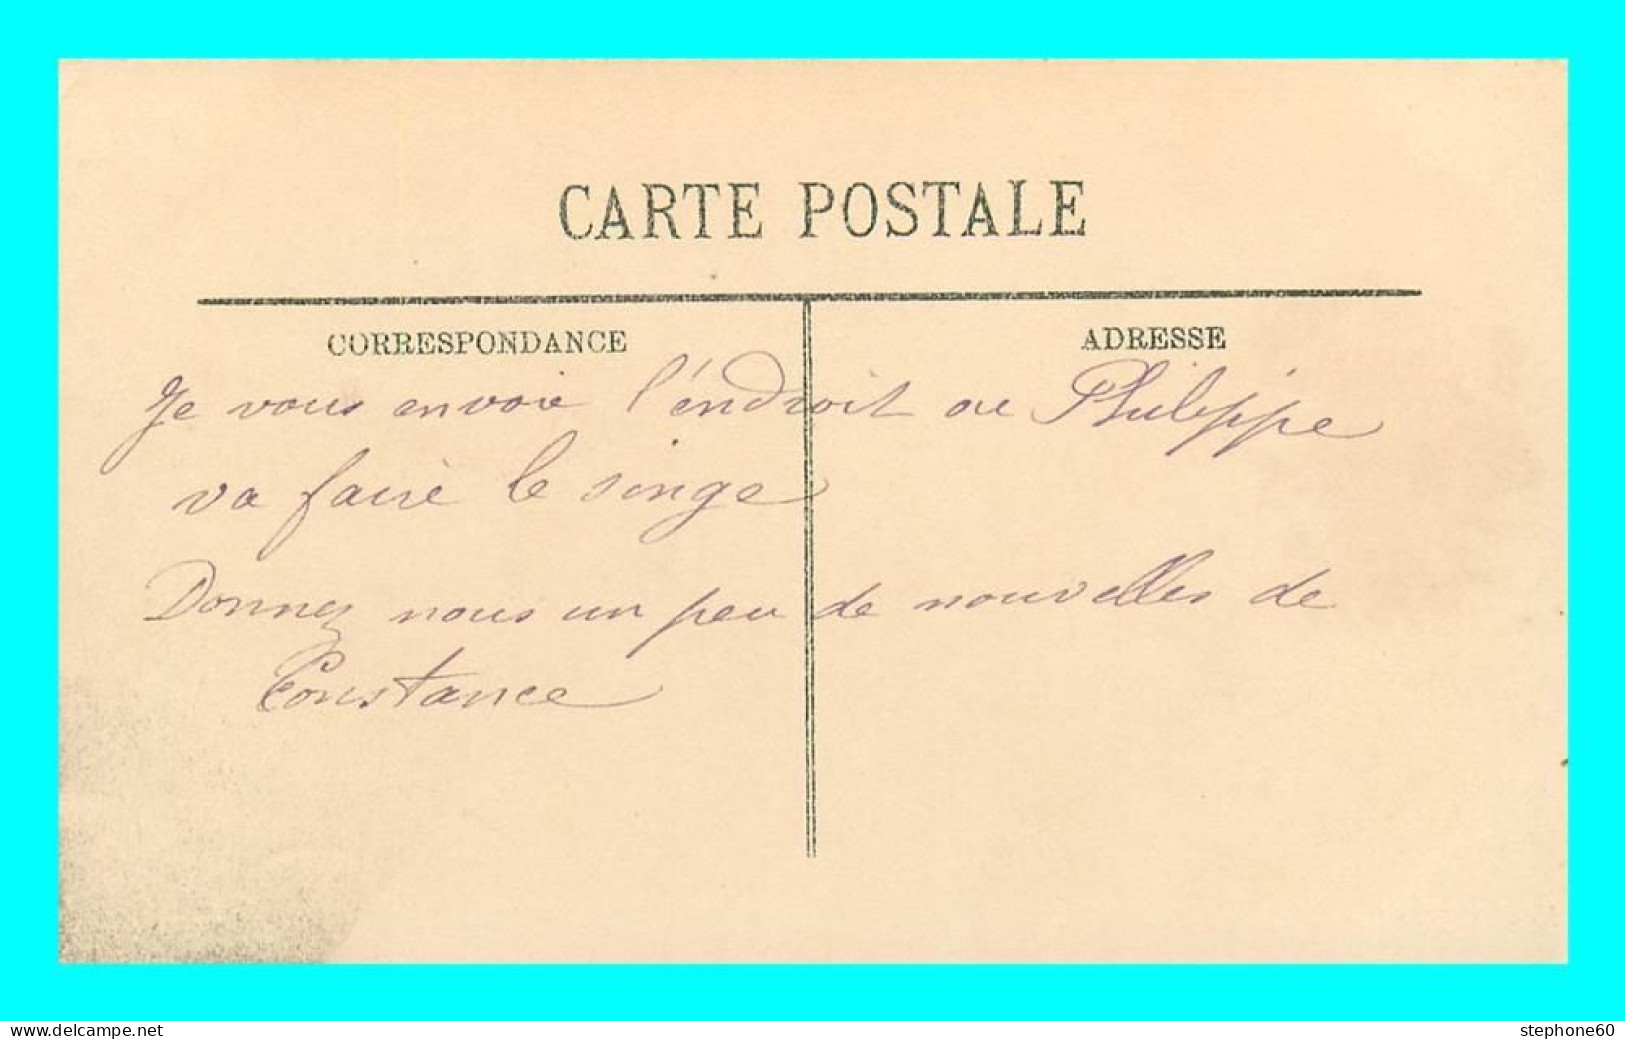 CARTE POSTALE
CORRESPONDANCE
ADRESSE
Je vous envoie l'éndroit ou Philippe
va faire le singe
Donnez nous un peu de nouvelles de
Constance
www.delcampe.net
stephone60